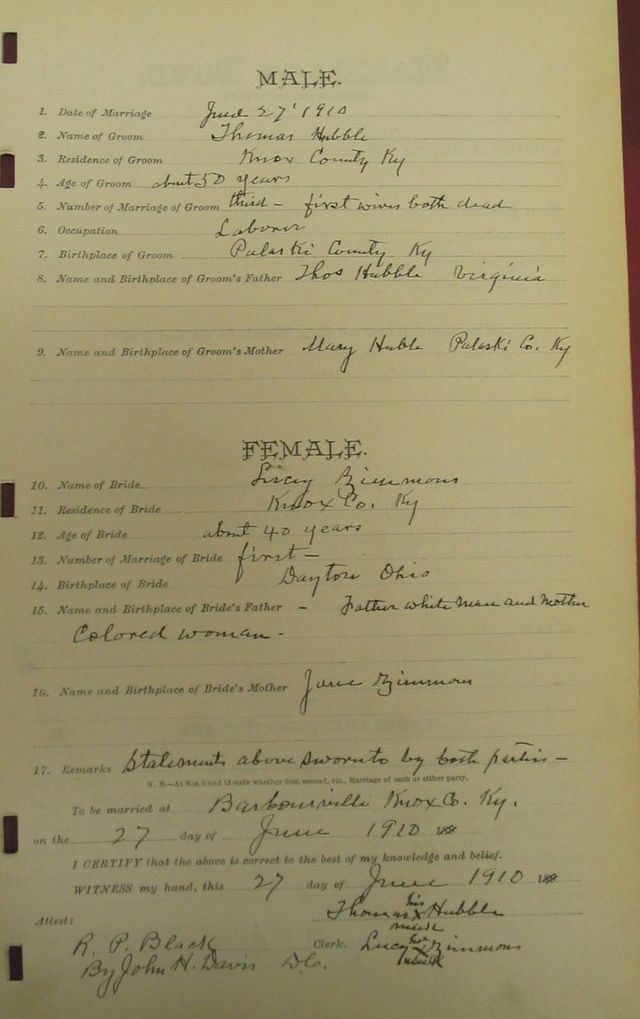 MALE.
1. Date of Marriage June 27' 1910
2. Name of Groom Thomas Hubble
3. Residence of Groom Knox County Ky
4. Age of Groom about 50 years
5. Number of Marriage of Groom third - first wives both dead
6. Occupation Laborer
7. Birthplace of Groom Pulaski County Ky
8. Name and Birthplace of Groom's Father Thos Hubble Virginia
9. Name and Birthplace of Groom's Mother Mary Huble Pulaski Co. Ky
FEMALE.
10. Name of Bride Zimmons
11. Residence of Bride Knox Co. Ky
12. Age of Bride about 40 years
13. Number of Marriage of Bride first -
14. Birthplace of Bride Dayton Ohio
15. Name and Birthplace of Bride's Father - Father white man and Mother
Colored woman -
16. Name and Birthplace of Bride's Mother Jane Zimmons
17. Remarks Statements above sworn to by both parties -
N. B.-At Nos 5 and 13 state whether first, second, etc., Marriage of each or either party.
To be married at Barbourville Knox Co. Ky.
on the 27 day of June 1910
I CERTIFY that the above is correct to the best of my knowledge and belief.
WITNESS my hand, this 27 day of June 1910
his
Thomas x Hubble
mark
Attest:
R. P. Black Clerk.
her
Lucy x Zimmons
mark
By John H. Davis D.C.